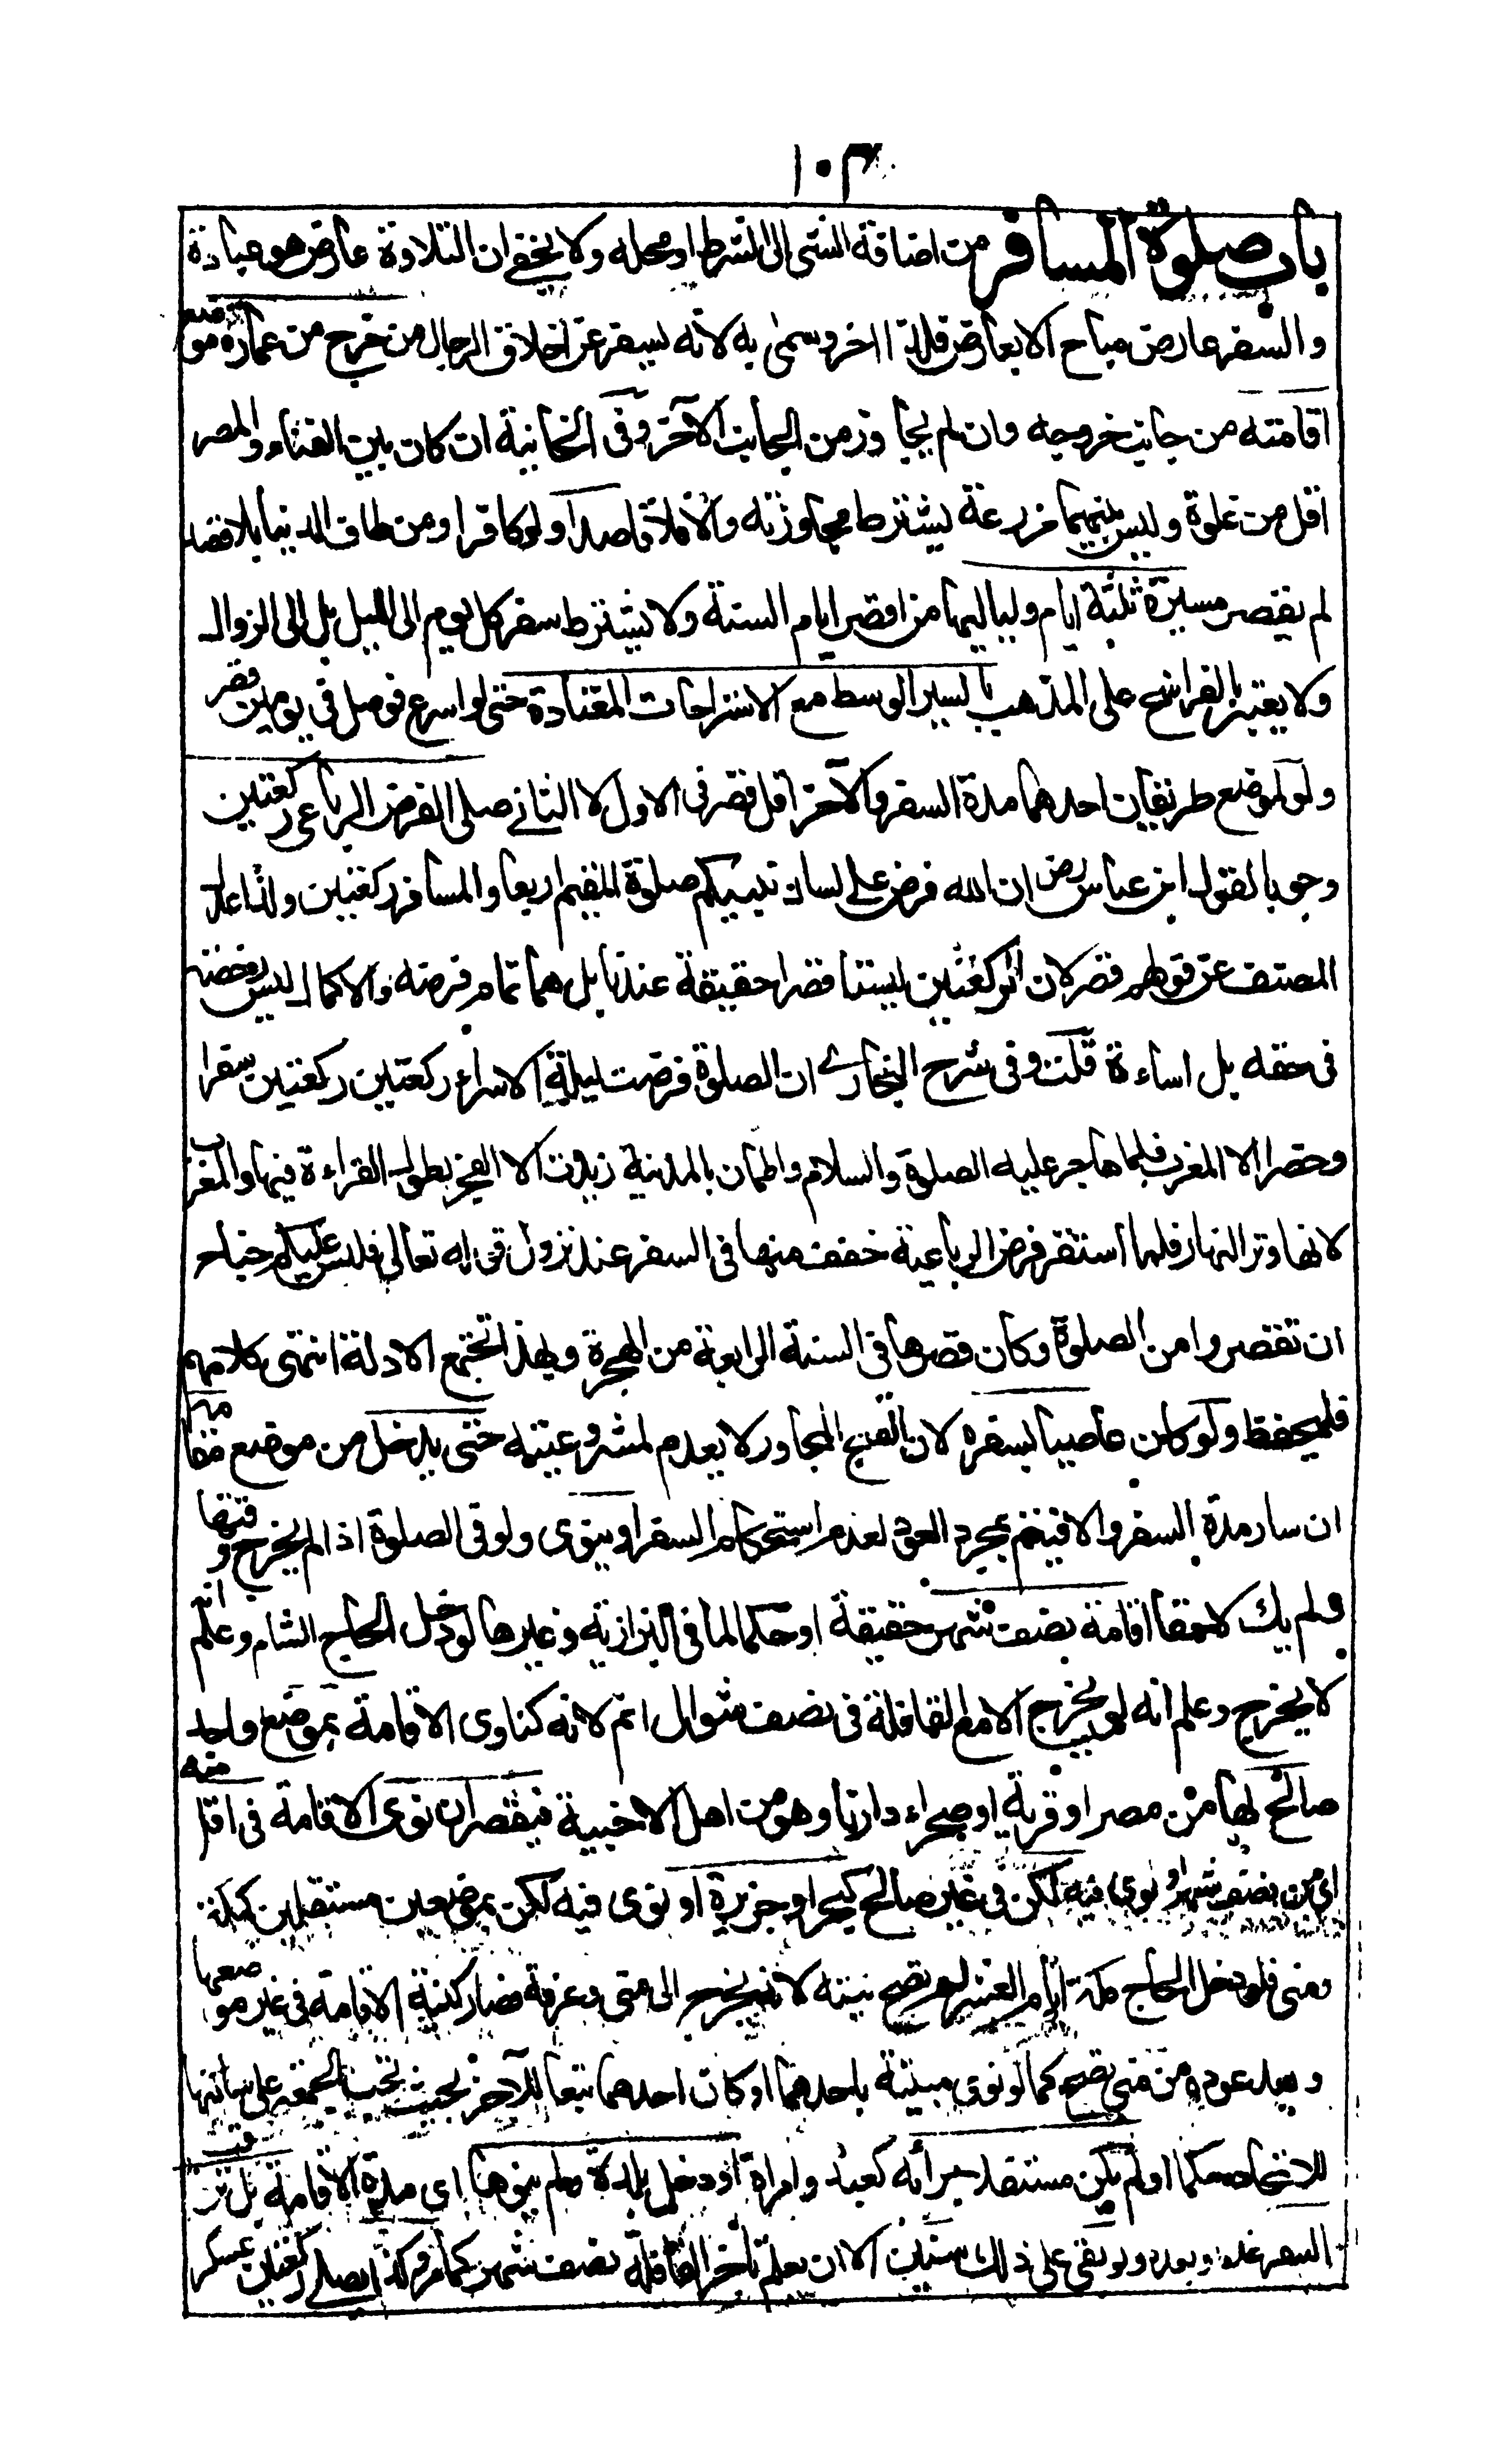 ١٠٣
باب صلوة المسافر من اضافة الشي الى الشرط او محله ولا يخفى ان التلاوة عارض هو عبادة
والسفر عارض مباح الا بعارض فلذا اخر وسمى به لانه يسفر عن اخلاق الرجال من خرج من عمارة موضع
اقامته من جانب خروجه وان لم يجاوز من الجانب الآخر وفى الخانية ان كان بين الفناء والمصر
اقل من غلوة وليس بينهما مزرعة يشترط مجاوزته والا فلا قاصدا ولو كافرا ومن طاف الدنيا بلا قصد
لم يقصر مسيرة ثلثة ايام ولياليها من اقصر ايام السنة ولا يشترط سفر كل يوم الى الليل بل الى الزوال
ولا يعتبر بالفراسخ على المذهب بالسير الوسط مع الاستراحات المعتادة حتى لو اسرع فوصل في يومين قصر
ولو لموضع طريقان احدهما مدة السفر والآخر اقل قصر في الاول لا الثاني صلى الفرض الرباعي ركعتين
وجوبا لقول ابن عباس رض ان الله فرض على لسان نبيكم صلوة المقيم اربعا والمسافر ركعتين ولذا عدل
المصنف عن قولهم قصر لان الركعتين ليستا قصرا حقيقة عندنا بل هما تمام فرضه والاكمال ليس رخصة
في حقه بل اساءة قلت وفى شرح البخاري ان الصلوة فرضت ليلة الاسراء ركعتين ركعتين سفرا
وحضرا الا المغرب فلما هاجر عليه الصلوة والسلام واطمان بالمدينة زيدت الا الفجر لطول القراءة فيها والمغرب
لانها وتر النهار فلما استقر فرض الرباعية خفف منها في السفر عند نزول قوله تعالى فليس عليكم جناح
ان تقصروا من الصلوة وكان قصرها فى السنة الرابعة من الهجرة وبهذا تجتمع الادلة انتهى كلامهم
فليحفظ ولو كان عاصيا بسفره لان القبح المجاور لا يعدم المشروعيته حتى يدخل من موضع مقامه
ان سار مدة السفر والا فيتم بمجرد العود لعدم استحكام السفر او ينوى ولو فى الصلوة اذا لم يخرج وقتها
ولم يك لاحقا اقامة نصف شهر حقيقة او حكما لما فى البزازية وغيرها لو دخل الحاج الشام وعلم انه
لا يخرج وعلم انه لو يخرج الا مع القافلة فى نصف شوال اتم لانه كناوى الاقامة بموضع واحد
صالح لها من مصر او قرية او صحراء دارنا وهو من اهل الاخبية فيقصر ان نوى الاقامة فى اقل منه
اى من نصف شهر او نوى فيه لكن فى غير صالح كبحر او جزيرة او نوى فيه لكن بموضعين مستقلين كمكة
ومنى فلو دخل الحاج مكة ايام العشر لم تصح نيته لانه يخرج الى منى وعرفة فصار كنية الاقامة فى غير موضعها
وبعد عوده من منى تصح كما لو نوى مبيته باحدهما او كان احدهما تبعا للآخر بحيث تجب الجمعة على ساكنها
للاتحاد حكما او لم يكن مستقلا برأيه كعبد وامرأة او دخل بلدة ولم ينوها اى مدة الاقامة بل ترقب
السفر غدا او بعده ولو بقى على ذلك سنين الا ان يعلم تأخر القافلة نصف شهر كما مر وكذا يصلى ركعتين عسكر